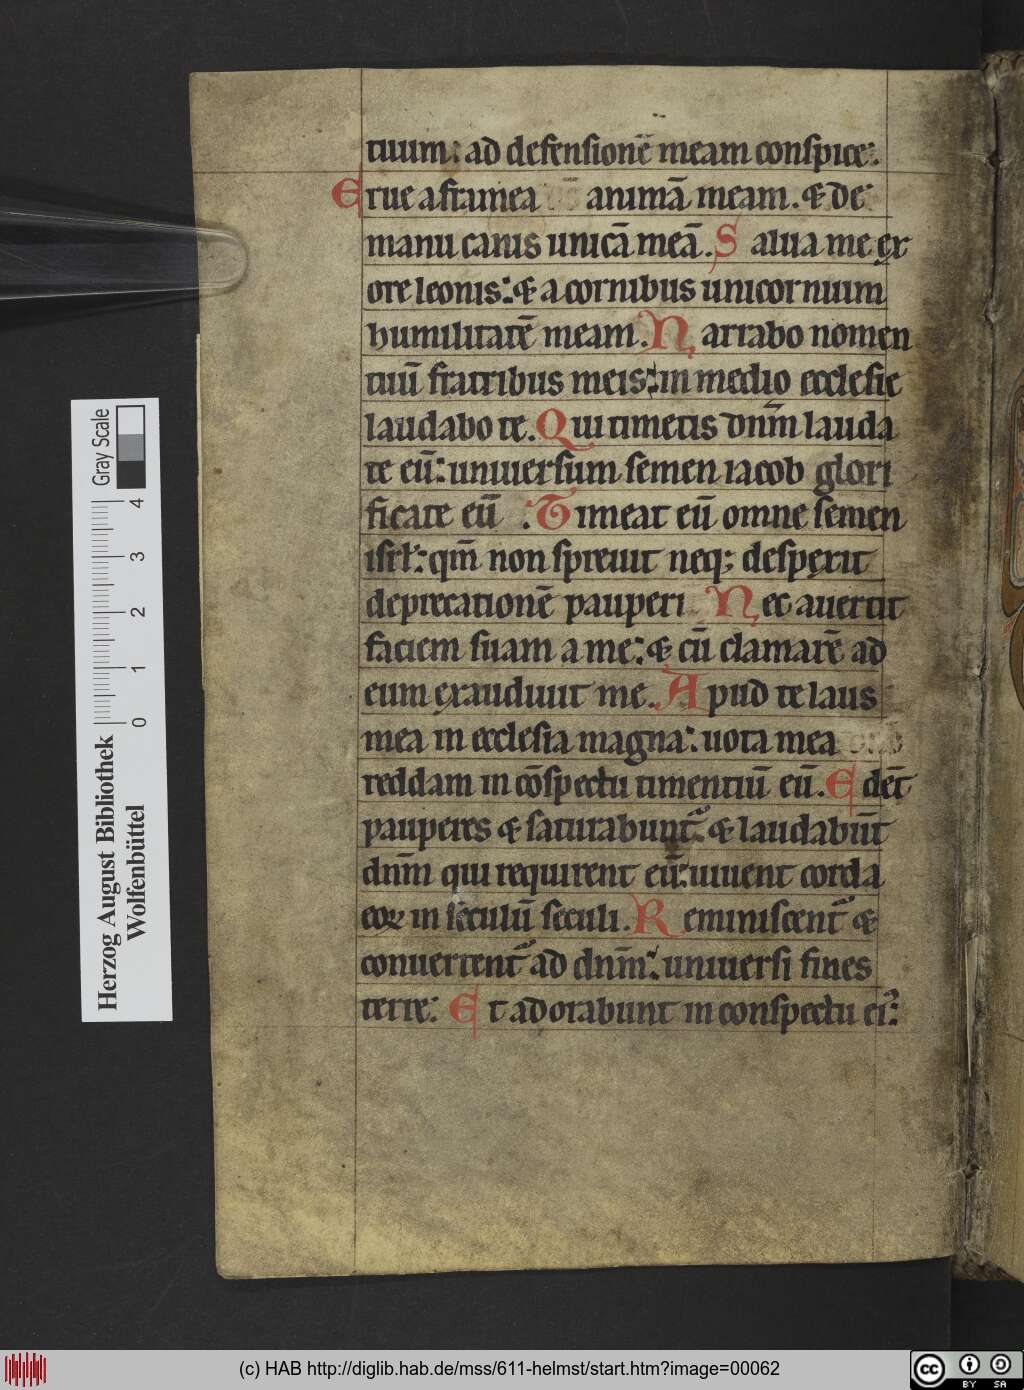 tuum: ad defensionē meam conspice:
Erue a framea animā meam. & de
manu canis unicā meā. Salua me ex
ore leonis: & a cornibus unicornium
humilitatē meam. Narrabo nomen
tuū fratribus meis: in medio ecclesie
laudabo te. Qui timetis dnm̄ lauda
te eū: universum semen iacob glori
ficate eū. Timeat eū omne semen
isrl: qm̄ non spreuit neq; desperit
deprecationē pauperi Nec auertit
faciem suam a me: & cū clamarē ad
eum exaudiuit me. Apud te laus
mea in ecclesia magna: uota mea
reddam in cōspectu timentiū eū. Edēt
pauperes & saturabunt᷑: & laudabūt
dnm̄ qui requirent eū: uiuent corda
eoꝝ in seculū seculi. Reminiscent᷑ &
conuertent᷑ ad dnm̄: uniuersi fines
terre: Et adorabunt in conspectu ei᷒:
Gray Scale
0 1 2 3 4
Herzog August Bibliothek
Wolfenbüttel
(c) HAB http://diglib.hab.de/mss/611-helmst/start.htm?image=00062
cc BY SA